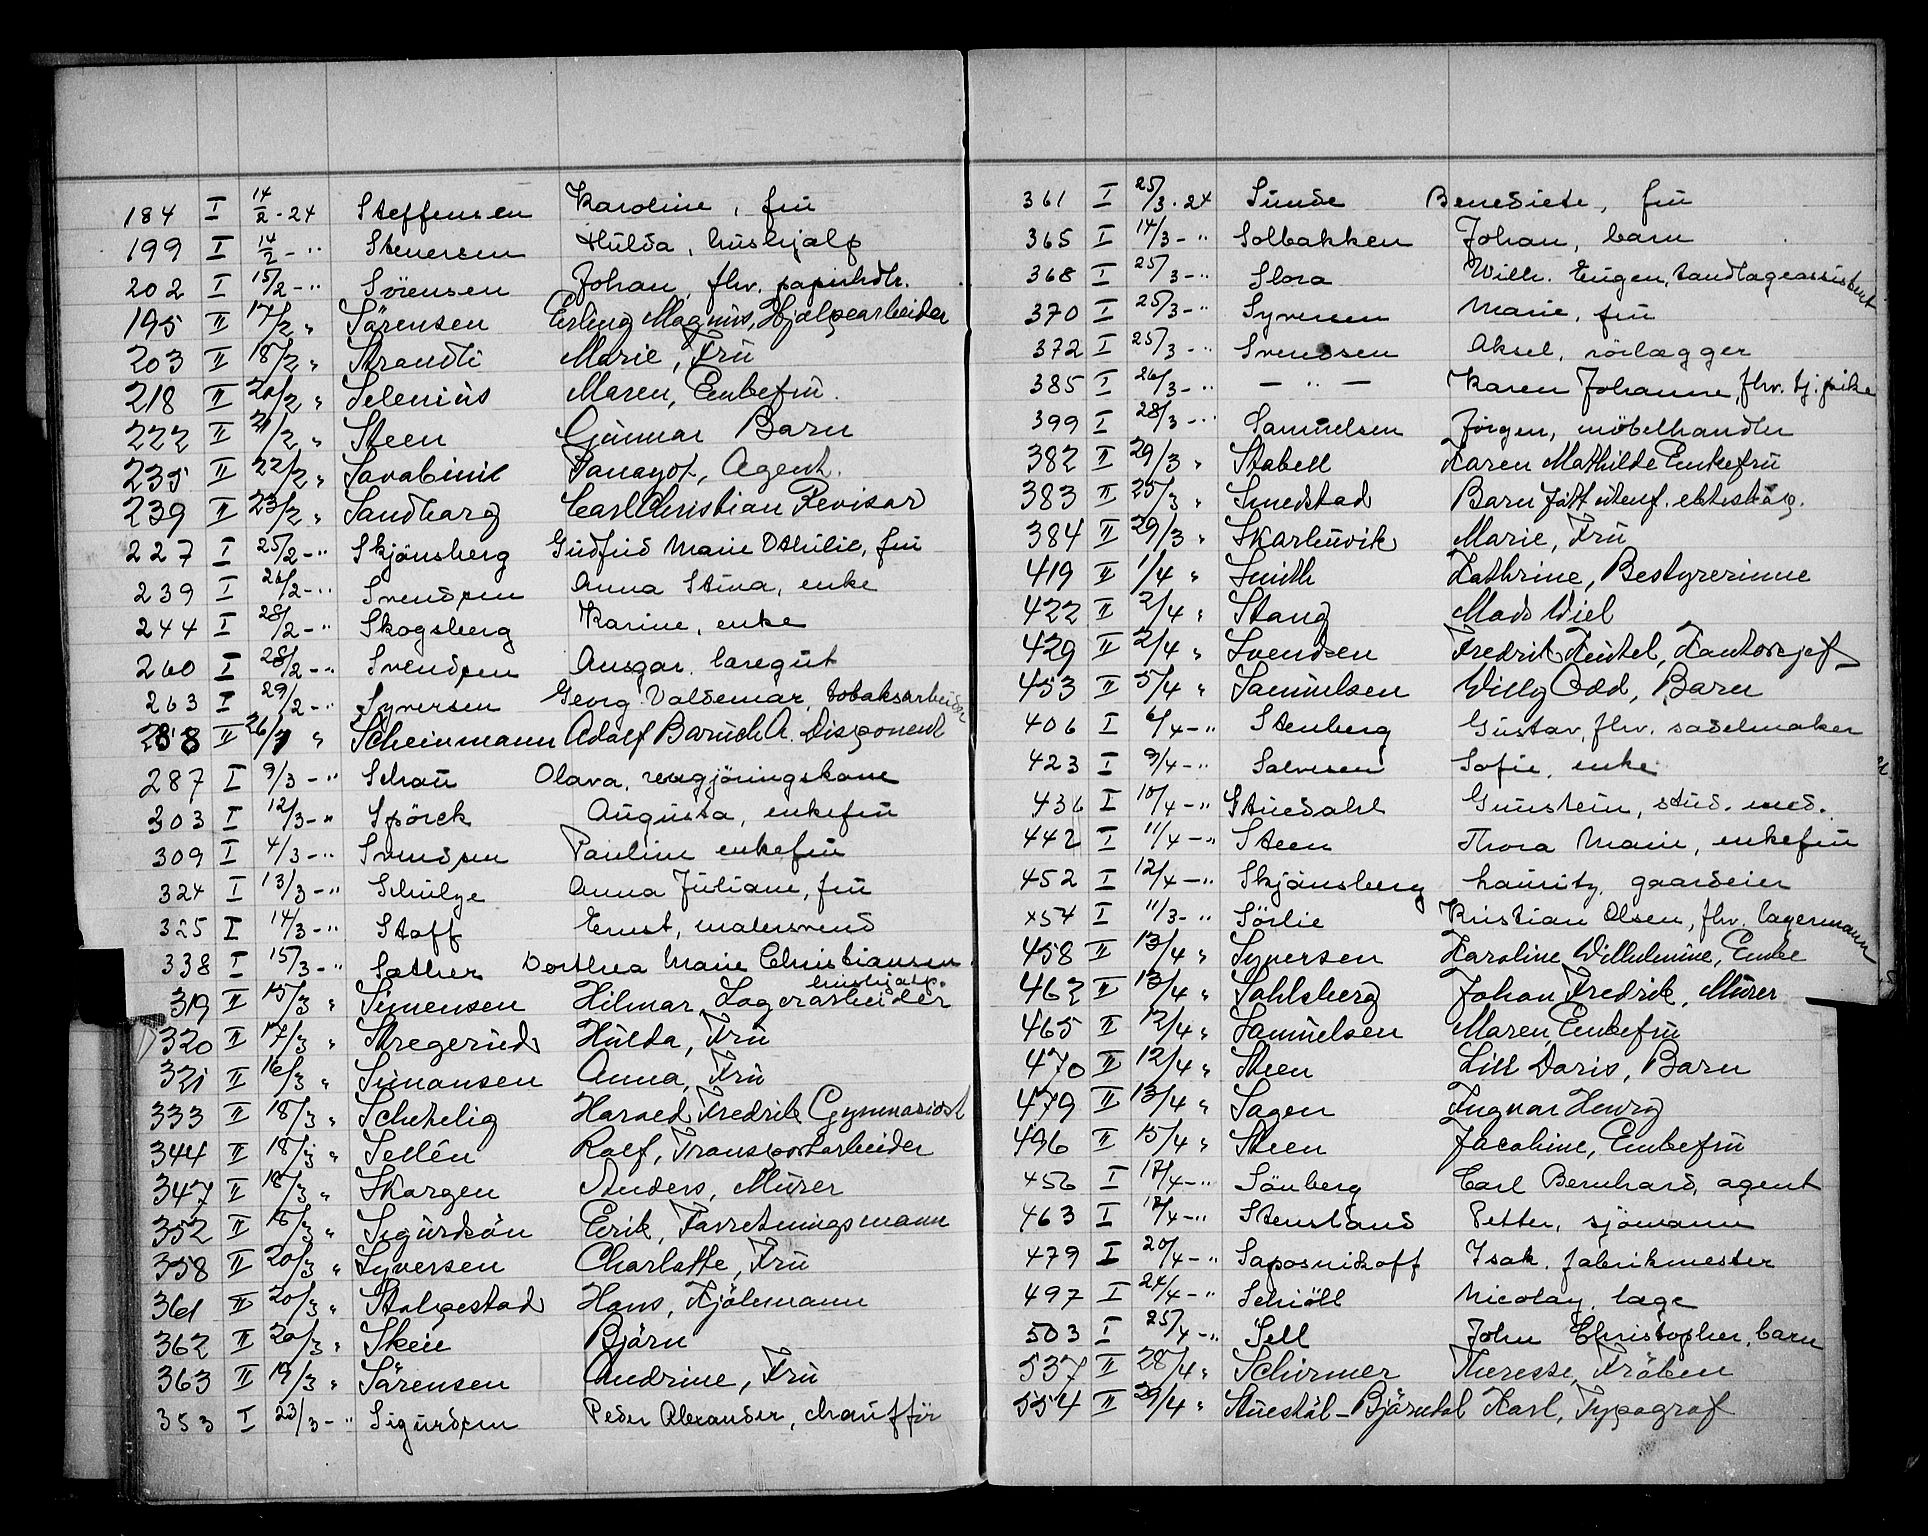 184 I 14/2-24 Steffensen Karoline, fru
199 I 14/2-" Stenersen Hulda, hushjælp
202 I 15/2-" Sörensen Johan, fhv. papirhdlr.
195 II 17/2 " Sörensen Erling Magnus, Hjælpearbeider
203 II 18/2 " Strandli Marie, Fru
218 II 20/2 " Selenius Maren, Enkefru.
222 II 21/2 " Steen Gunnar Barn
235 II 22/2 " Panayot, Agent.
239 II 23/2 " Sandharg Carl Christian Revisor
227 I 25/2-" Skjönsberg Gudfrid Marie Othilie, fru
239 I 26/2-" Svendsen Anna Stina, enke
244 I 28/2-" Skogsberg Karine, enke
260 I 28/2-" Svendsen Ansgar. læregut
263 I 29/2-" Syversen Georg Valdemar, tobaksarbeider
288 II 26/1 " Scheinmann Adolf Baruch A. Disponent
287 I 9/3-" Schau Olava, rengjöringskone
303 I 12/3-" Spörck Augusta, enkefru
309 I 4/3-" Svendsen Pauline enkefru
324 I 13/3-" Schulze Anna Juliane, fru
325 I 14/3-" Staff Ernst, malersvend
338 I 15/3-" Sæther Dorthea Marie Christiansen hushjælp.
319 II 15/3 " Simensen Hilmar, Lagerarbeider
320 II 17/3 " Stregerud Hulda, Fru
321 II 16/3 " Simonsen Anna, Fru
333 II 18/3 " Schetelig Harald Fredrik Gymnasiast
344 II 18/3 " Sellén Rolf, Transportarbeider
347 II 18/3 " Skorgen Anders, Murer
352 II 18/3 " Sigurdsön Erik, Forretningsmann
358 II 20/3 " Syversen Charlotte, Fru
361 II 20/3 " Stolpestad Hans, Kjölemann
362 II 20/3 " Skeie Björn
363 II 19/3 " Sörensen Andrine, Fru
353 I 23/3-" Sigurdsen Peder Alexander, chauffør
361 I 25/3-24 Sunde Benedicte, fru
365 I 14/3-" Solbakken Johan, barn
368 I 25/3-" Slora Wilh. Eugen, tandlægeassistent
370 I 25/3-" Syversen Marie, fru
372 I 25/3-" Svendsen Aksel, rörlægger
385 I 26/3-" — " — Karen Johanne, fhv. tj.pike
399 I 28/3-" Samuelsen Jörgen, möbelhandler
382 II 29/3 " Stabell Karen Mathilde Enkefru
383 II 25/3 " Smedstad Barn født utenf. ekteskap.
384 II 29/3 " Skarhuvik Marie, Fru
419 II 1/4 " Smith Kathrine, Bestyrerinne
422 II 2/4 " Stang Mads Wiel
429 II 2/4 " Svendsen Fredrik Keutel, Kontorsjef
453 II 5/4 " Samuelsen Willy Odd, Barn
406 I 6/4-" Stenberg Gustav, fhv. sadelmaker
423 I 9/4-" Salvesen Sofie, enke
436 I 10/4-" Stuedahl Gunstein, stud. med.
442 I 11/4-" Steen Thora Marie, enkefru
452 I 12/4-" Skjönsberg Lauritz, gaardeier
457 I 11/3-" Sörlie Kristian Olsen, fhv. lagermann
458 II 13/4 " Syversen Karoline Wilhelmine, Enke
462 II 13/4 " Sahlsberg Johan Fredrik, Murer
465 II 12/4 " Samuelsen Maren, Enkefru
470 II 12/4 " Steen Lill Doris, Barn
479 II 13/4 " Sagen Ingvar Henry
496 II 15/4 " Steen Jacobine, Enkefru
456 I 17/4-" Sönberg Carl Bernhard, agent
463 I 17/4-" Stensland Petter, sjömann
479 I 20/4-" Saposnikoff Isak, fabrikmester
497 I 24/4-" Schiöll Nicolay, læge
503 I 25/4-" Sell John Christopher, barn
537 II 28/4 " Schirmer Therese, Fröken
554 II 29/4 " Stuestöl-Björndal Karl, Typograf